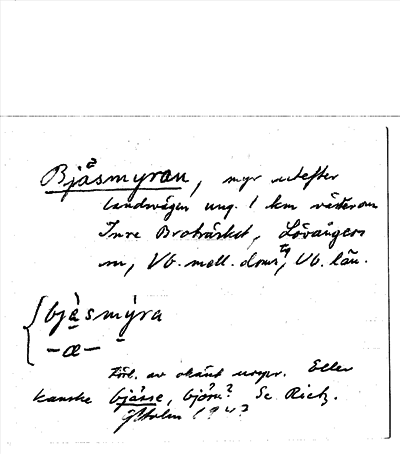 Bjåsmyran, myr utefter
landsvägen ung. 1 km väster om
Inre Broträsket, Lövångers
sn, Vb. mell. doms, Vb. län.
bjåsmýra
-æ-
Förl. av okänt urspr. Eller
kanske bjässe, björn? Se Rietz.
1943